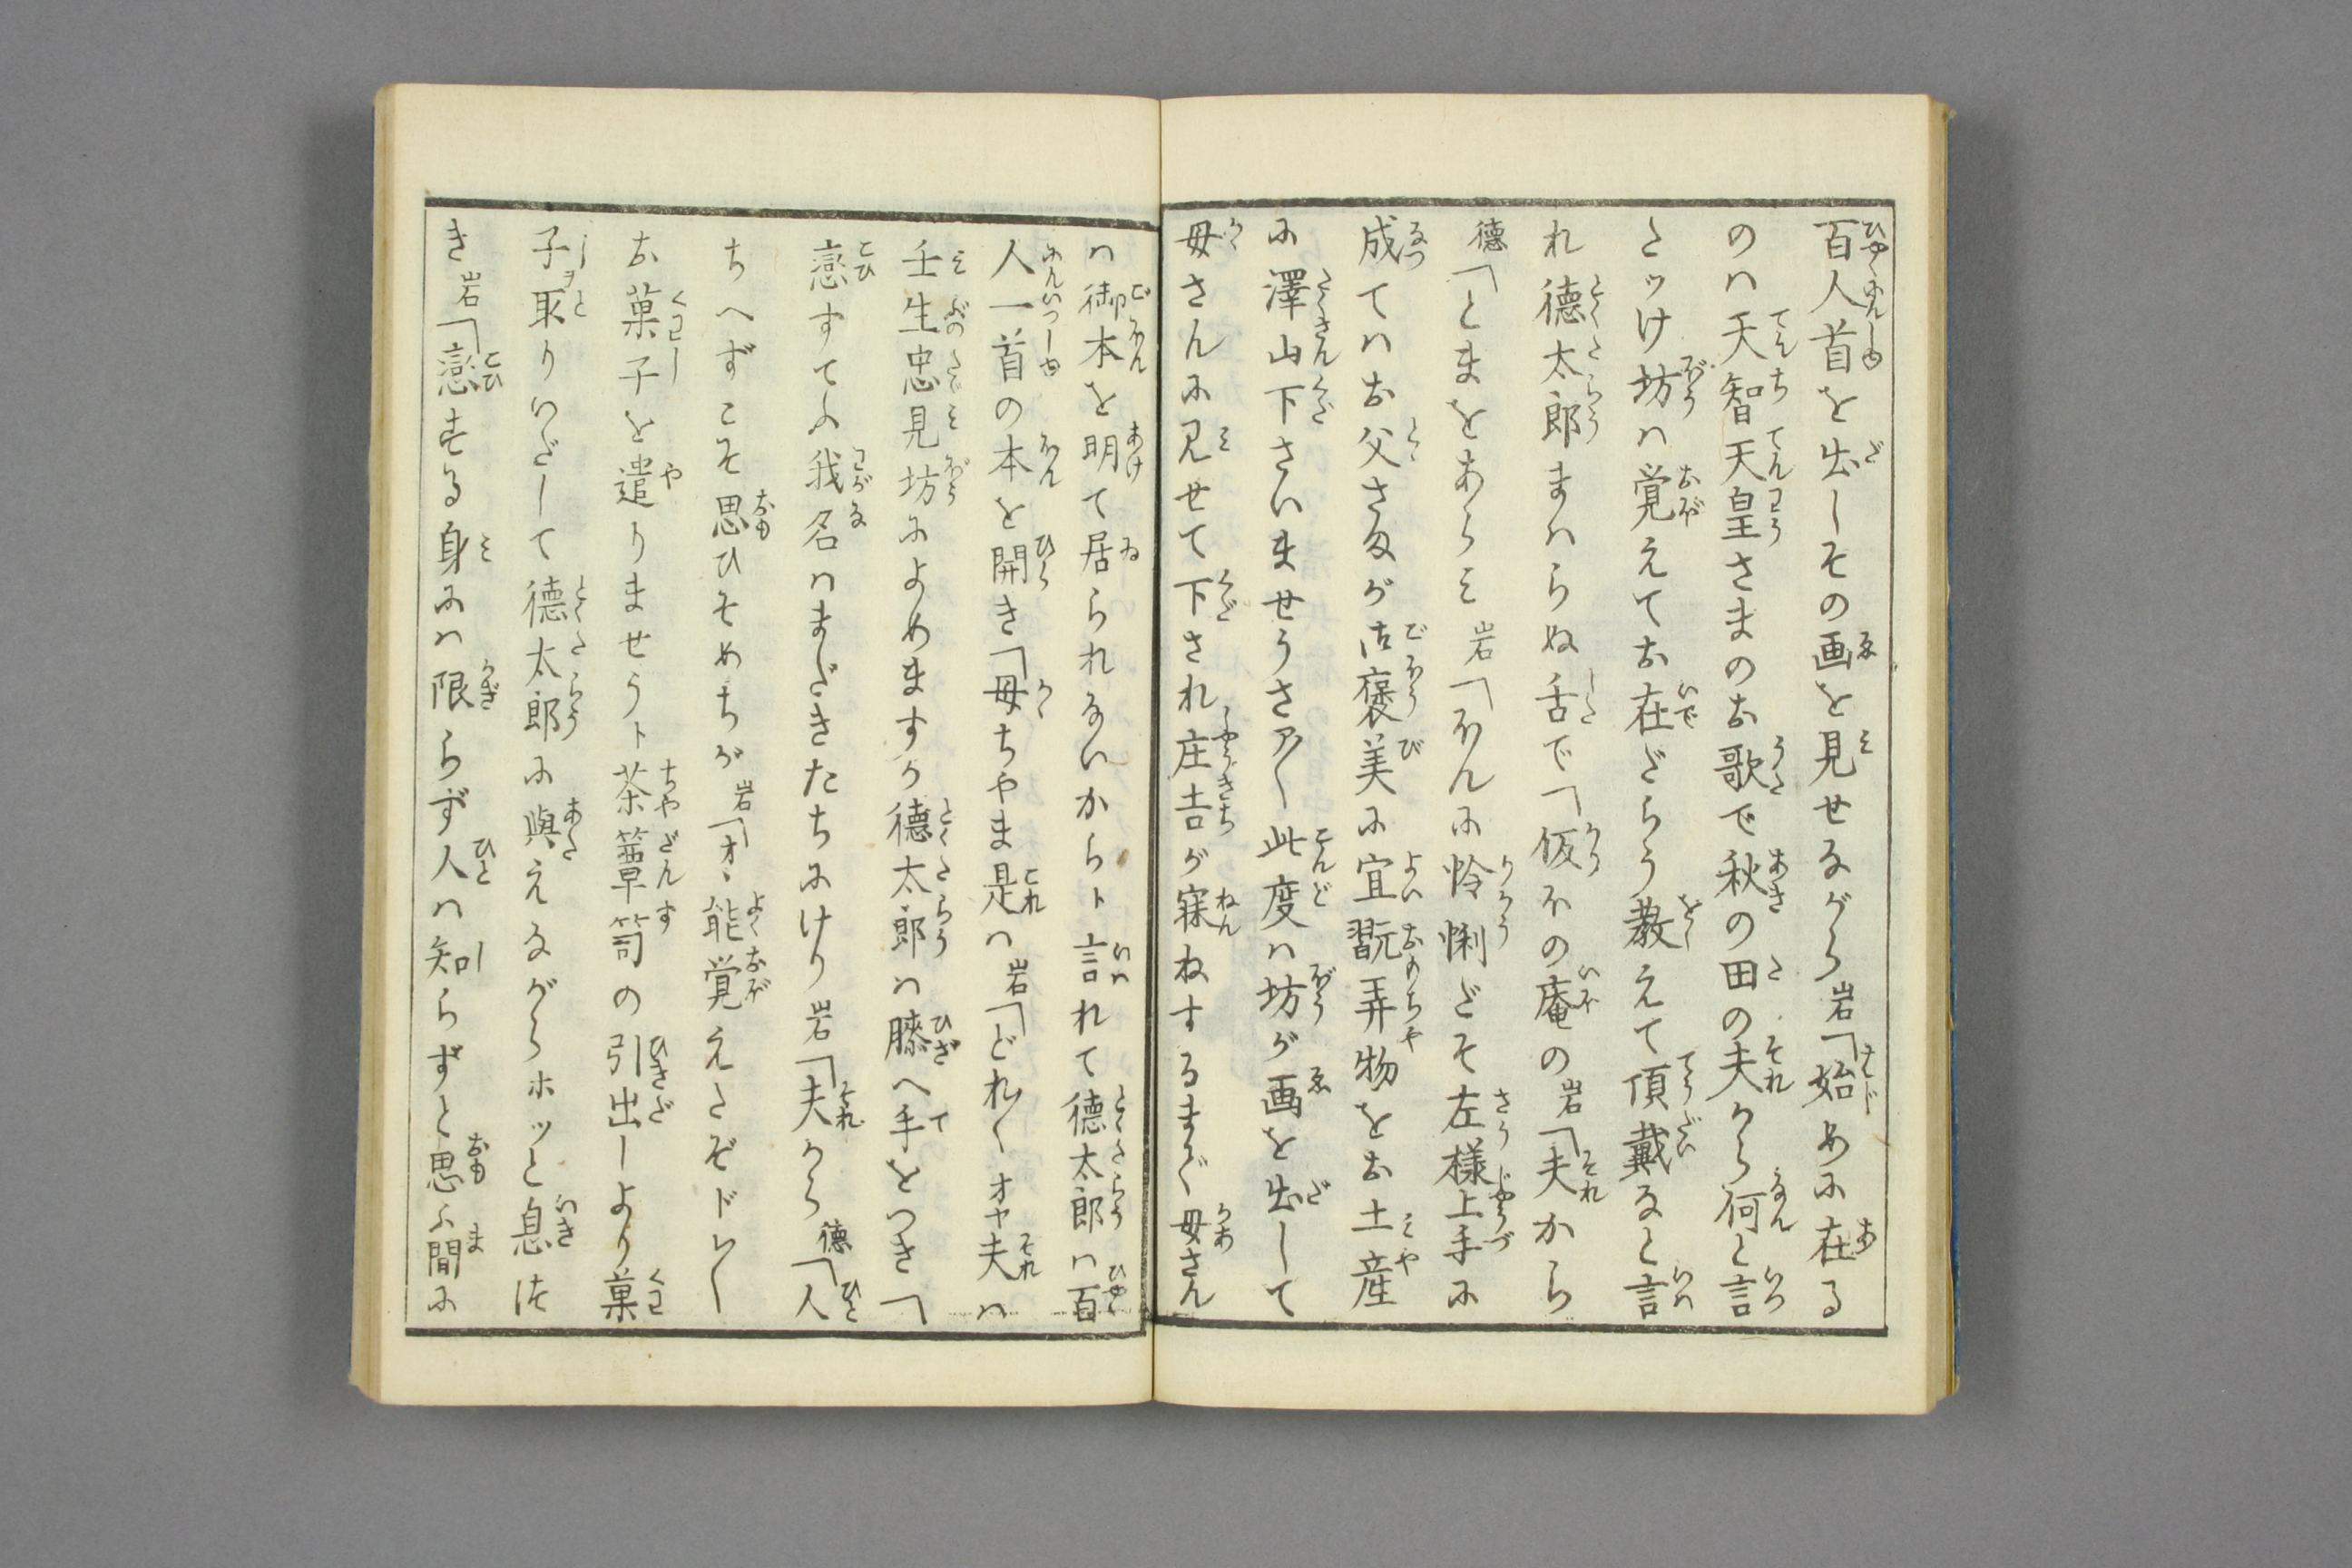 百人首を出しその画を見せながら岩「始めに在る
のハ天智天皇さまのお歌で秋の田の夫から何と言
たッけ坊ハ覚えてお在だらう教えて頂戴なと言
れ徳太郎まハらぬ舌で「仮ほの庵の岩「夫から
徳「とまをあらミ岩「ほんに怜悧だそ左様上手に
成てハお父さまが御褒美に宜翫弄物をお土産
に澤山下さいませうさア〱此度ハ坊が画を出して
母さんに見せて下され庄吉が寐ねするまで母さん
ハ御本を明て居られないからト言れて徳太郎ハ百
人一首の本を開き「母ちやま是ハ岩「どれ〱オヤ夫ハ
壬生忠見坊によめますか徳太郎ハ膝へ手をつき「
戀すてふ我名ハまだきたちにけり岩「夫から徳「人
ちへずこそ思ひそめちが岩「オヽ能覚えたぞドレ〱
お菓子を遣りませうト茶簞笥の引出しより菓
子取りいだして徳太郎に與えながらホッと息つ
き岩「戀する身にハ限らず人ハ知らずと思ふ間に